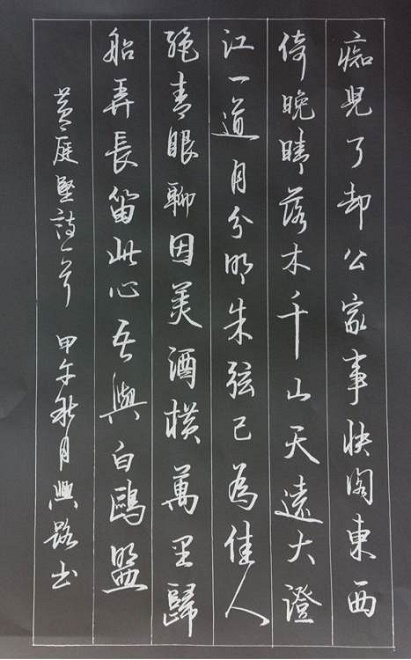 痴兒了却公家事快閣東西
倚晚晴落木千山天遠大澄
江一道月分明朱弦已為佳人
絕青眼聊因美酒橫萬里歸
船弄長笛此心吾與白鷗盟
黃庭堅詩一首 甲午秋月興路書